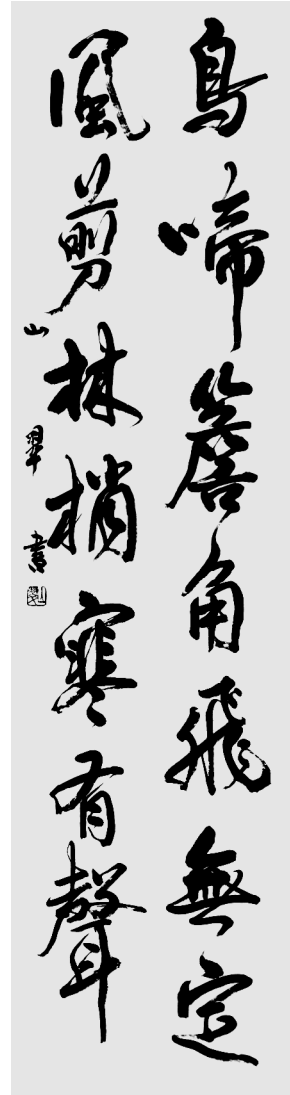 鳥啼簷角飛無定
風剪林梢寒有聲
山翠書